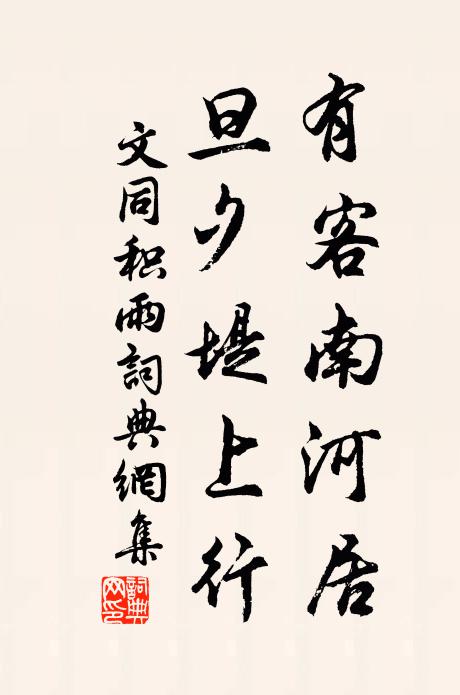 有客南河居
旦夕堤上行
文同积雨詞典網集
詞典网印